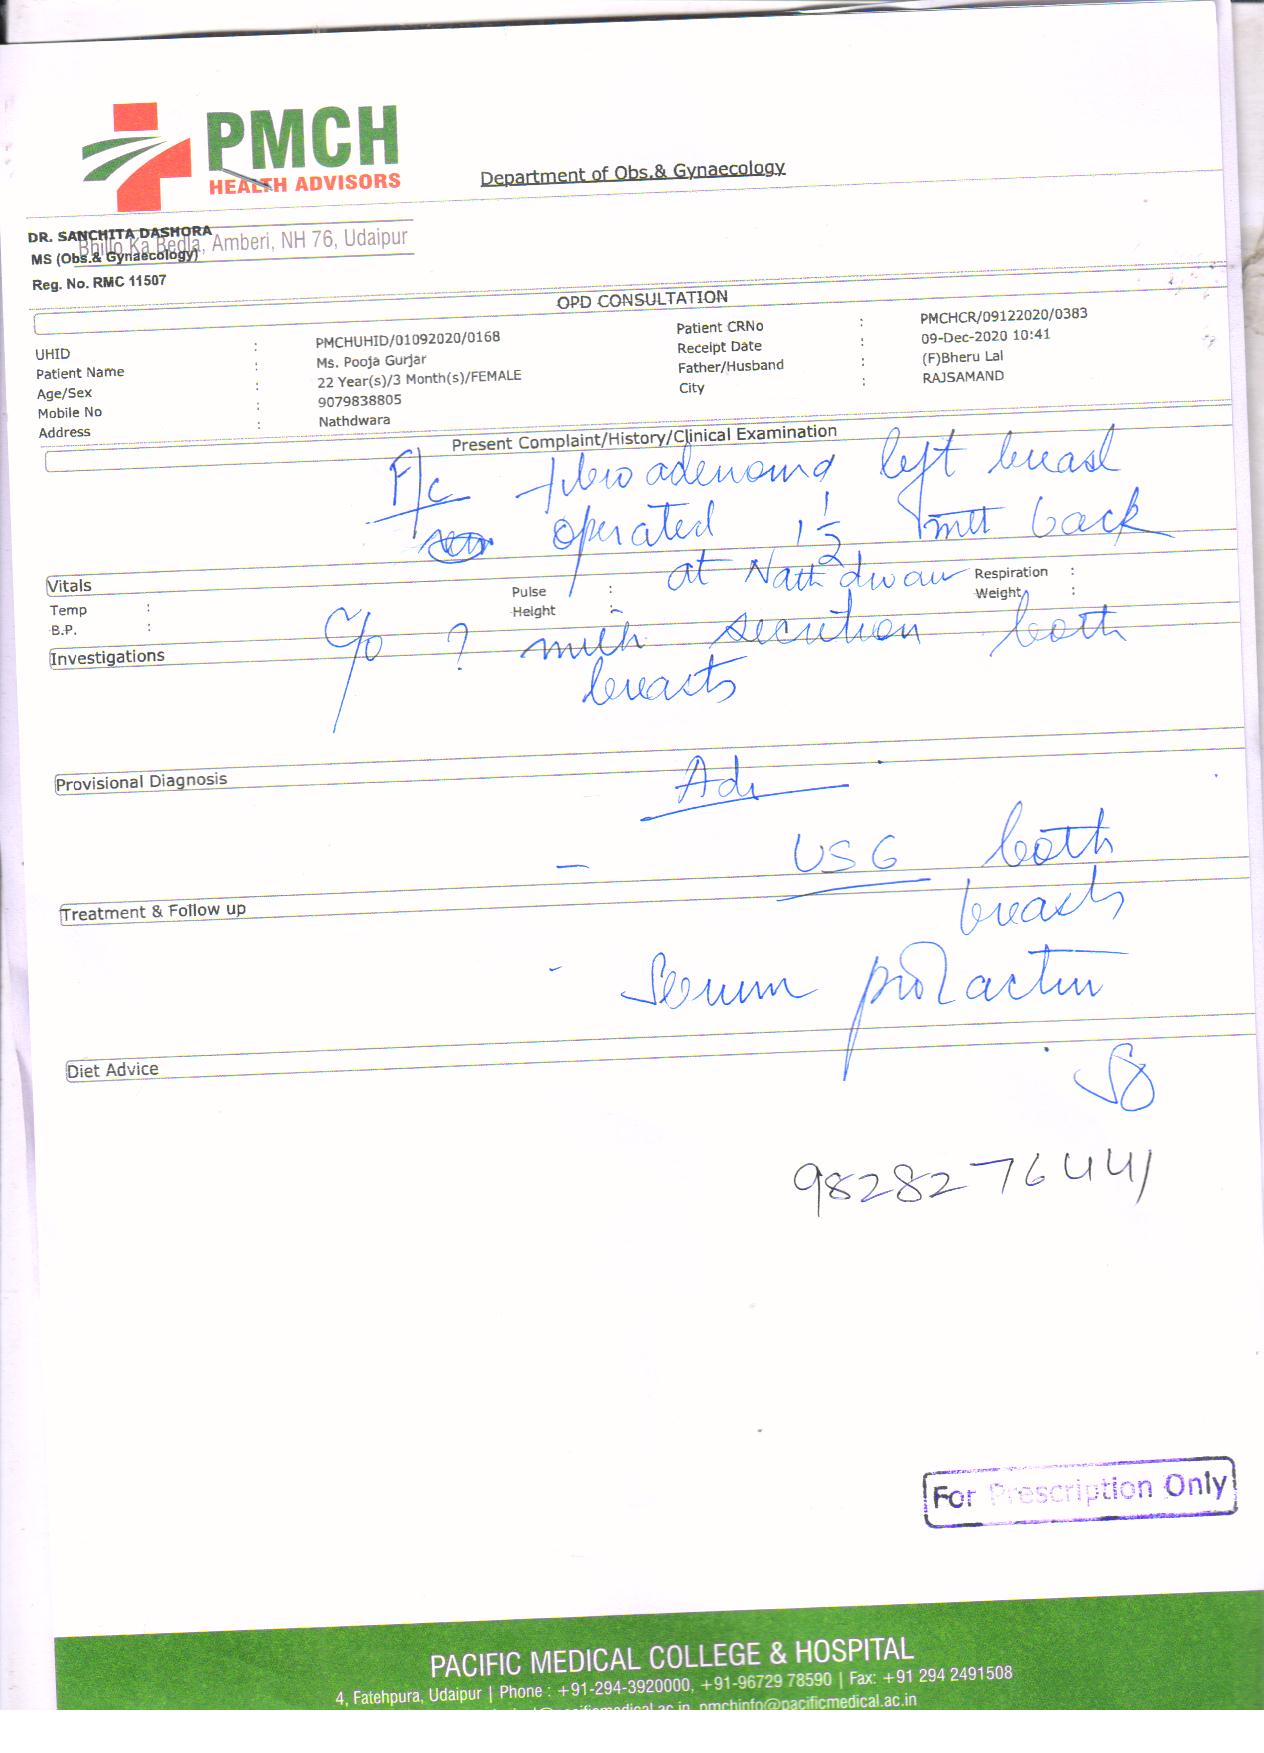 PMCH
HEALTH ADVISORS
Department of Obs.& Gynaecology
DR. SANCHITA DASHORA
Bhillo Ka Bedla, Amberi, NH 76, Udaipur
MS (Obs.& Gynaecology)
Reg. No. RMC 11507
OPD CONSULTATION
UHID : PMCHUHID/01092020/0168 Patient CRNo : PMCHCR/09122020/0383
Patient Name : Ms. Pooja Gurjar Receipt Date : 09-Dec-2020 10:41
Age/Sex : 22 Year(s)/3 Month(s)/FEMALE Father/Husband : (F)Bheru Lal
Mobile No : 9079838805 City : RAJSAMAND
Address : Nathdwara
Present Complaint/History/Clinical Examination
F/c fibroadenoma left breast
operated 1 1/2 mth back
at Nathdwara
Vitals
Temp : Pulse : Respiration :
B.P. : Height : Weight :
C/o ? milk secretion both
breasts
Investigations
Provisional Diagnosis
Adv
- USG both
breasts
Treatment & Follow up
- Serum prolactin
Diet Advice
9828276441
For Prescription Only
PACIFIC MEDICAL COLLEGE & HOSPITAL
4, Fatehpura, Udaipur | Phone : +91-294-3920000, +91-96729 78590 | Fax: +91 294 2491508
pmchinfo@pacificmedical.ac.in